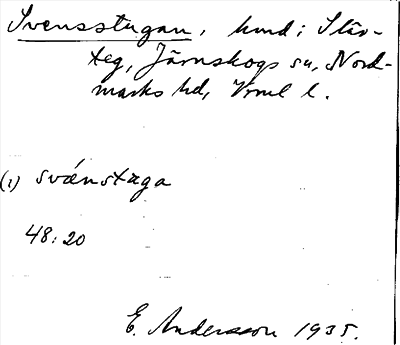 Svensstugan, hmd i Släv-
teg, Järnskogs sn, Nord-
marks hd, Vrml l.
(1) svǽnstuga
48:20
E. Andersson 1935.